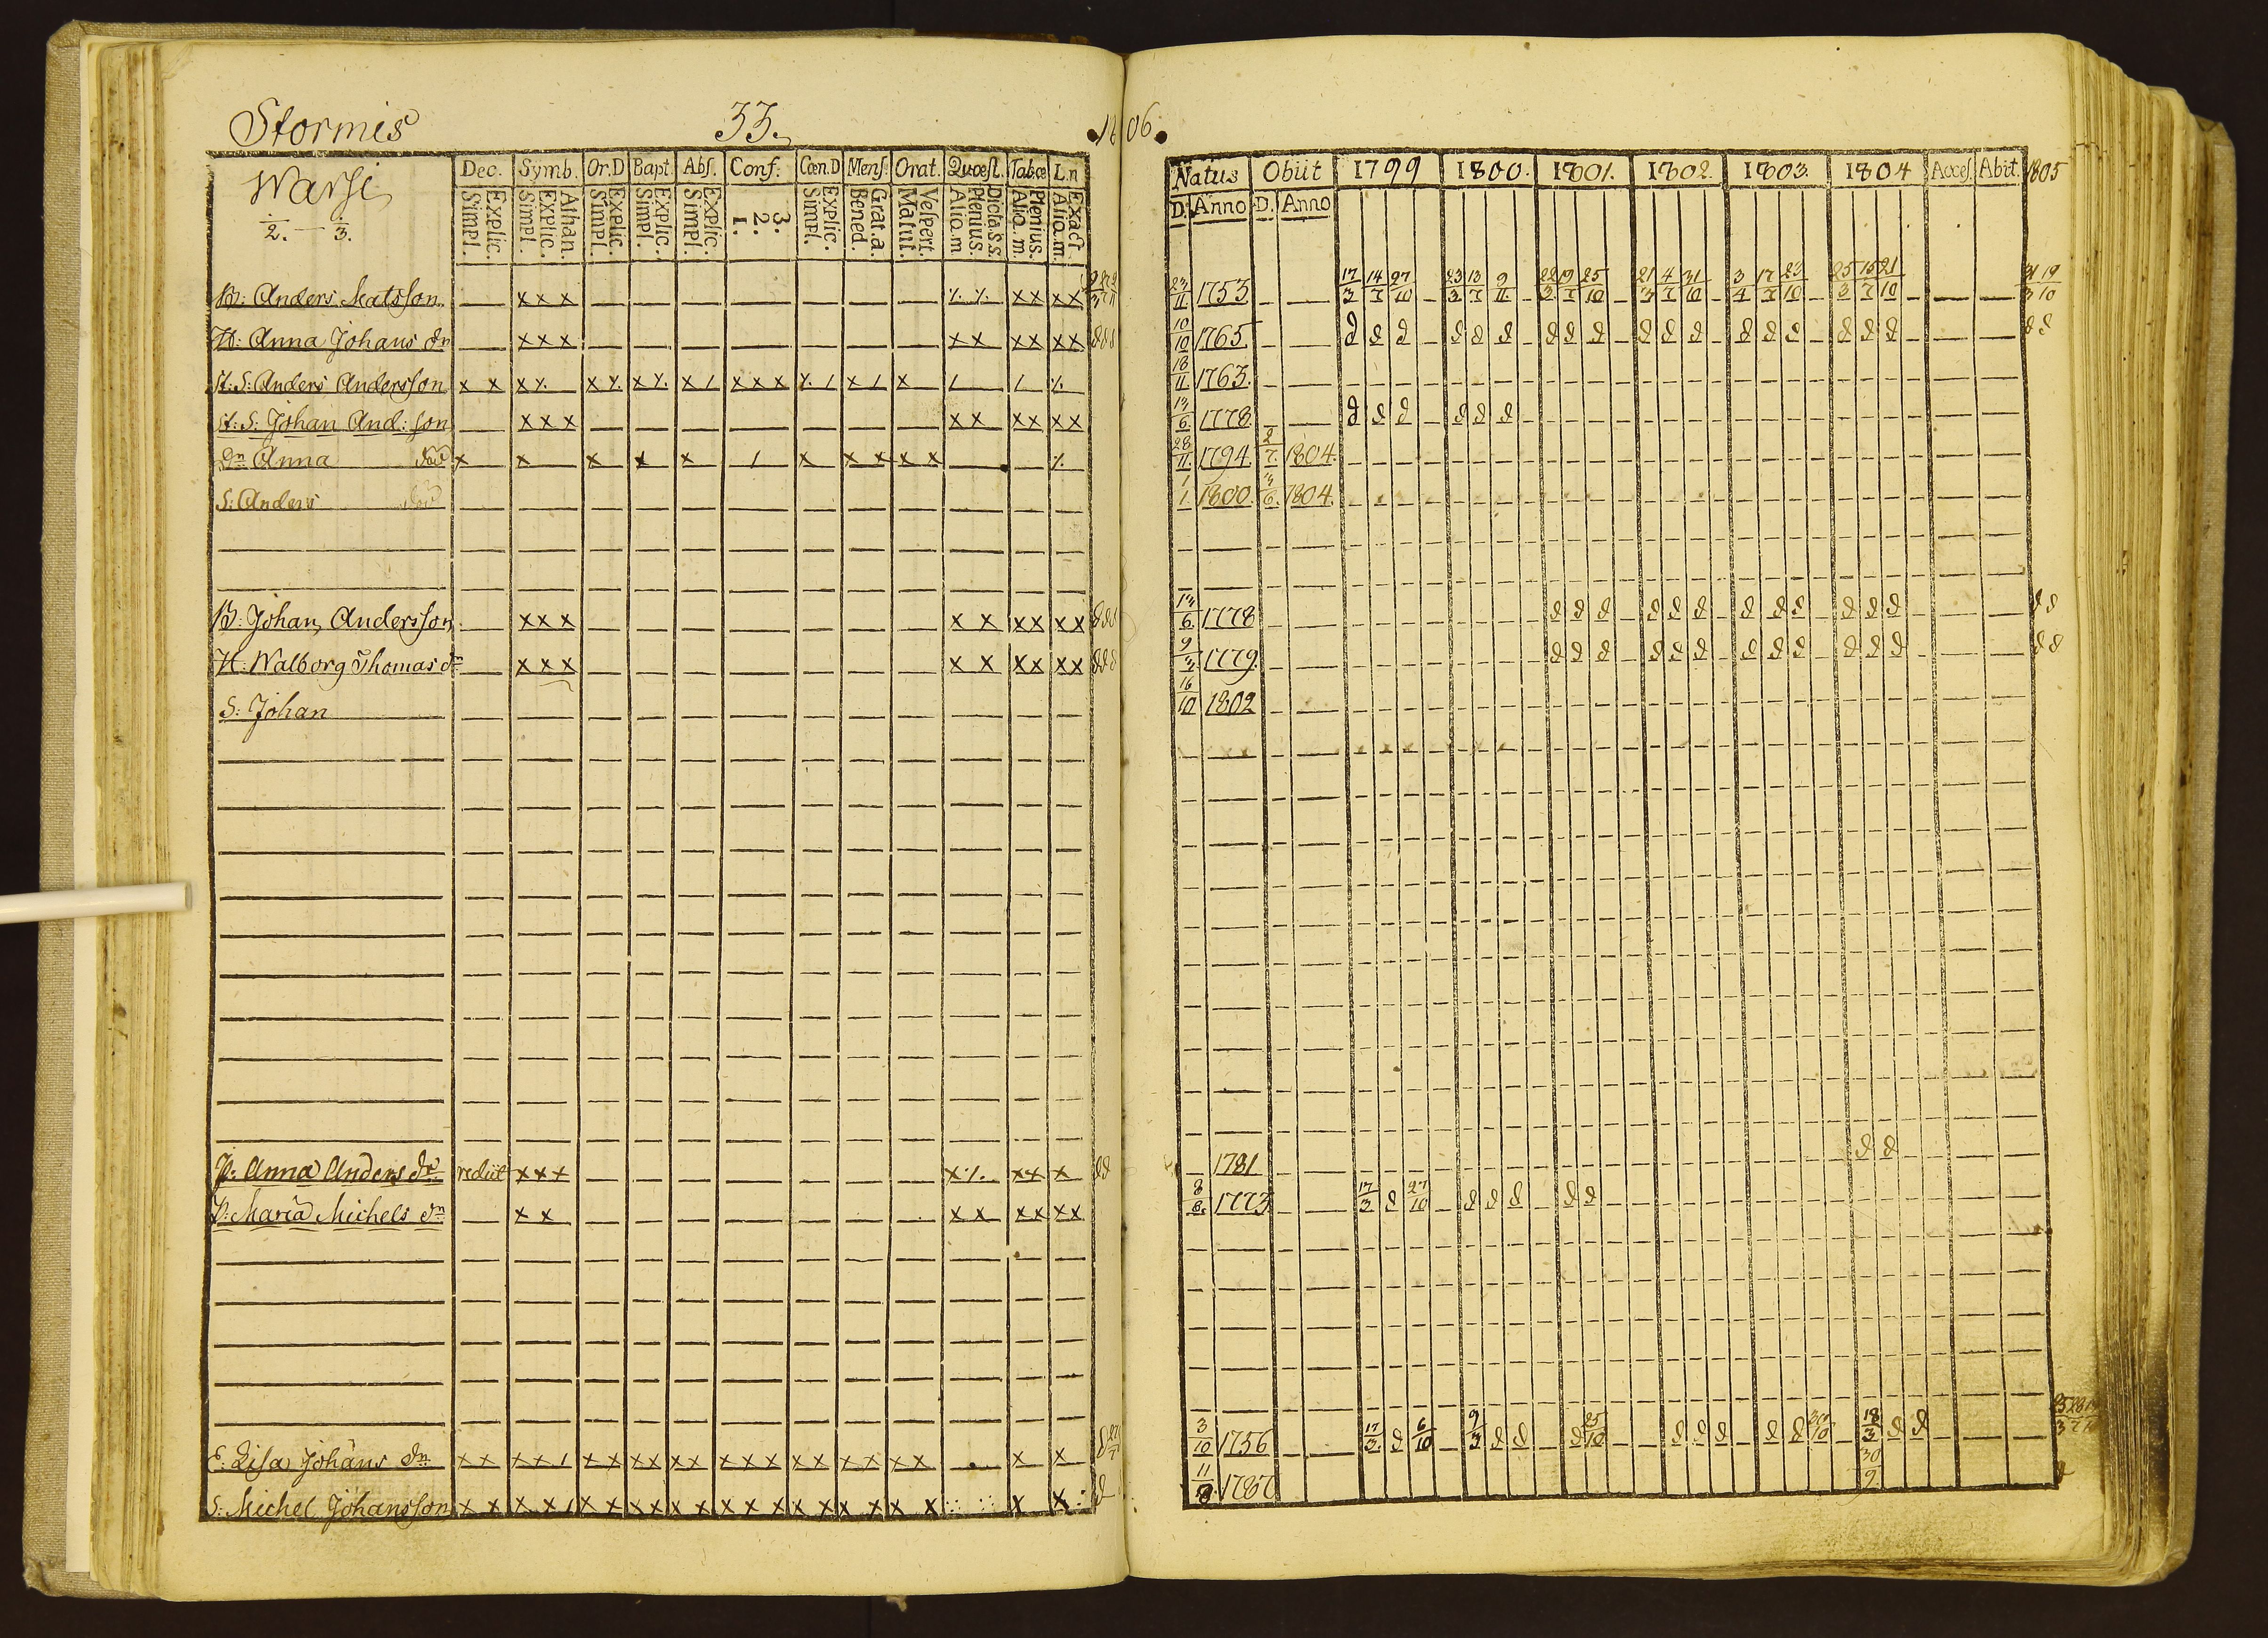 Stormis 33. 1806.
Warse
2. — 3.
Dec. Symb. Or.D Bapt. Abs. Conf. Cœn.D Mens. Orat. Quæst. Tabœ L.n
Explic. Simpl. Athan. Explic. Simpl. Explic. Simpl. Explic. Simpl. Explic. Simpl. 3. 2. 1. Explic. Simpl. Grat.a. Bened. Vespert. Matut. Dicta.s.s. Plenius. Alio.m Plenius. Alio.m. Exact Alio.m.
Natus Obiit 1799 1800. 1801. 1802. 1803. 1804 Acces. Abit. 1805
D. Anno D. Anno
B: Anders Matsson x x x ٪ ٪ x x x x 23/11 1753 17/3 14/7 27/10 23/3 13/7 9/11 22/3 19/7 25/10 21/3 4/7 31/10 3/4 17/7 23/10 25/3 15/7 21/10 31/3 19/10
H: Anna Johans dn x x x x x x x x x 10/10 1765
S: Anders Andersson 18/11 1763.
S: Johan And: son x x x x x x x x x 13/6 1778
Dn Anna 28/11 1794 2/7 1804.
S: Anders 1/1 1800. 1804.
B: Johan Andersson x x x x x x x x x 13/6 1778
H: Walborg Thomas dn x x x x x x x x x 9/3 1779.
S: Johan 16/10 1802
P: Anna Anders dr rediit x x x x ٪ x x x 1781
P: Maria Michels dn x x x x x x x x 8/8 1773 17/3 27/10
E: Lisa Johans dn 3/10 1756 17/3 6/10 9/3 25/10 18/3
S: Michel Johansson 1787 30/9